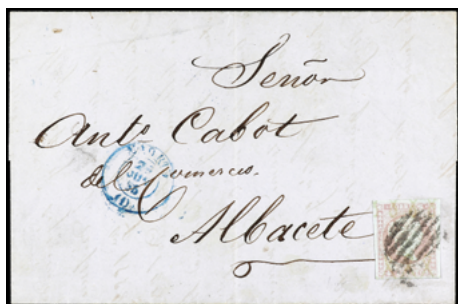 Señor
Antº Cabot
del Comercio.
Albacete